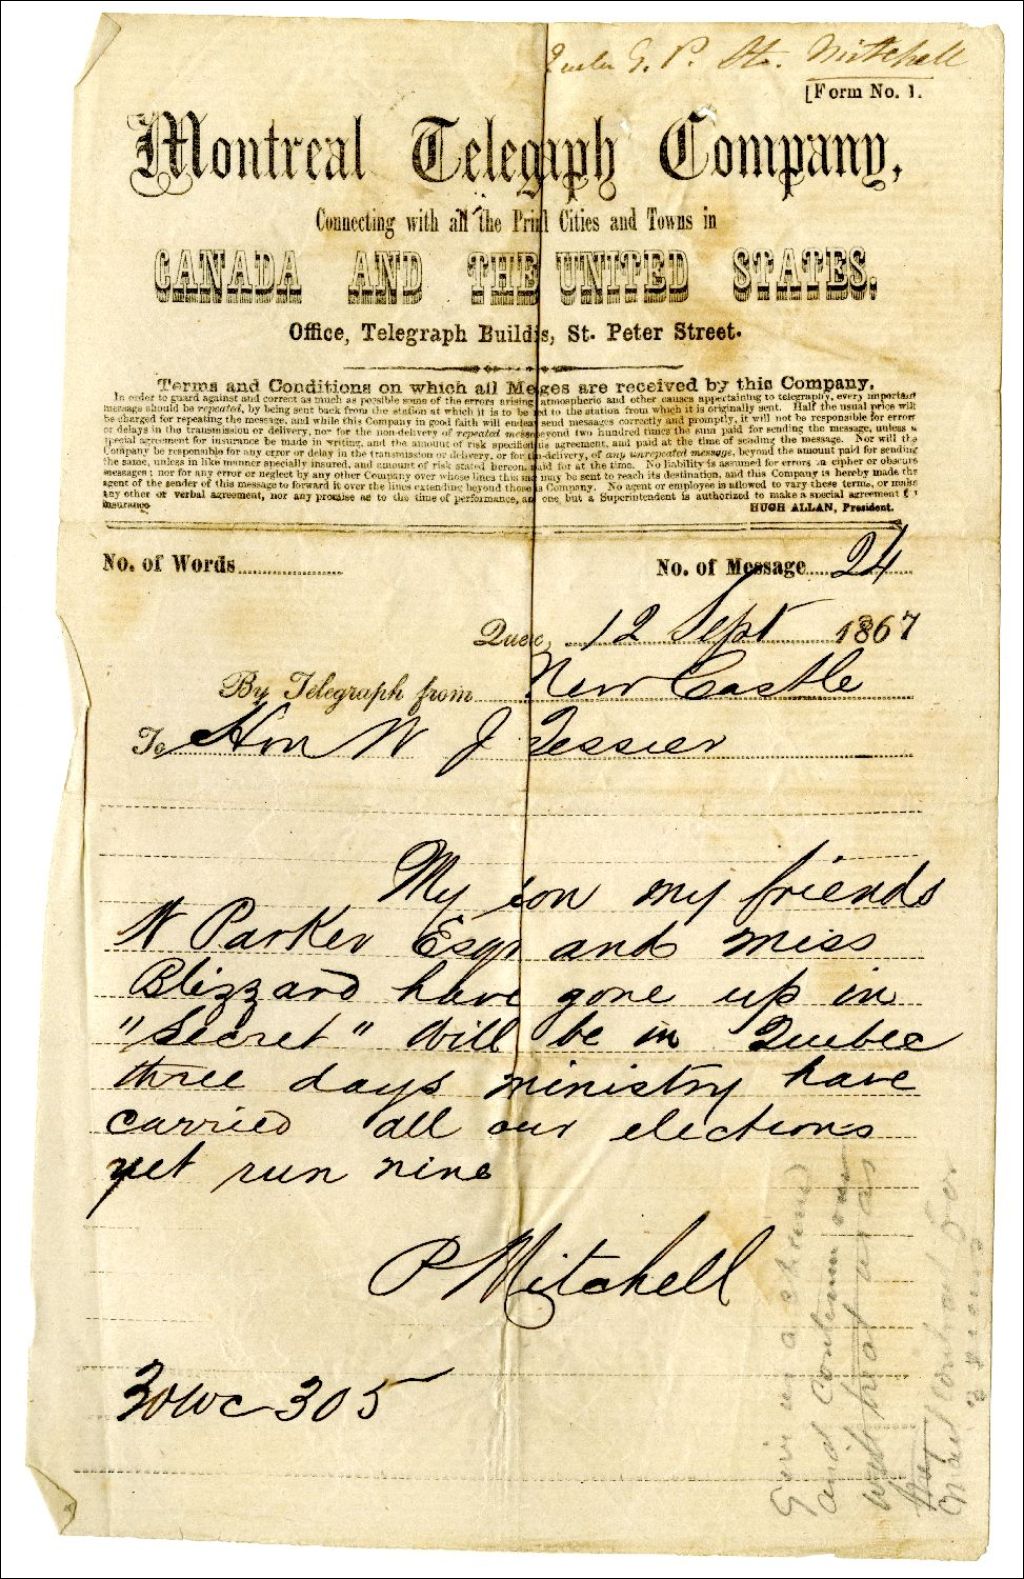 G. P. St. Mitchell
[Form No. 1.
Montreal Telegaph Company,
Connecting with all the Prinl Cities and Towns in
CANADA AND THE UNITED STATES.
Office, Telegraph Buildis, St. Peter Street.
Terms and Conditions on which all Meges are received by this Company.
In order to guard against and correct as much as possible some of the errors arising atmospheric and other causes appertaining to telegraphy, every important
message should be repeated, by being sent back from the station at which it is to be ed to the station from which it is originally sent. Half the usual price will
be charged for repeating the message, and while this Company in good faith will endea send messages correctly and promptly, it will not be responsible for error
or delays in the transmission or delivery, nor for the non-delivery of repeated messe eyond two hundred times the sum paid for sending the message, unless a
special agreement for insurance be made in writing, and the amount of risk specified is agreement, and paid at the time of sending the message. Nor will the
Company be responsible for any error or delay in the transmission or delivery, or for the n-delivery, of any unrepeated message, beyond the amount paid for sending
the same, unless in like manner specially insured, and amount of risk stated hereon, aid for at the time. No liability is assumed for errors in cipher or obscure
messages; nor for any error or neglect by any other Company over whose lines this may be sent to reach its destination, and this Company is hereby made the
agent of the sender of this message to forward it over the lines extending beyond those is Company. No agent or employee is allowed to vary these terms, or make
any other or verbal agreement, nor any promise as to the time of performance, an one but a Superintendent is authorized to make a special agreement
insurance
HUGH ALLAN, President.
No. of Words
No. of Message 24
Quec, 12 Sept 1867
By Telegraph from New Castle
To Hon W J Tessier
My son my friends
W Parker Esqr and miss
Blizzard have gone up in
"Secret" Will be in Quebec
three days ministry have
carried all our elections
yet run nine
P Mitchell
30wc 305
and